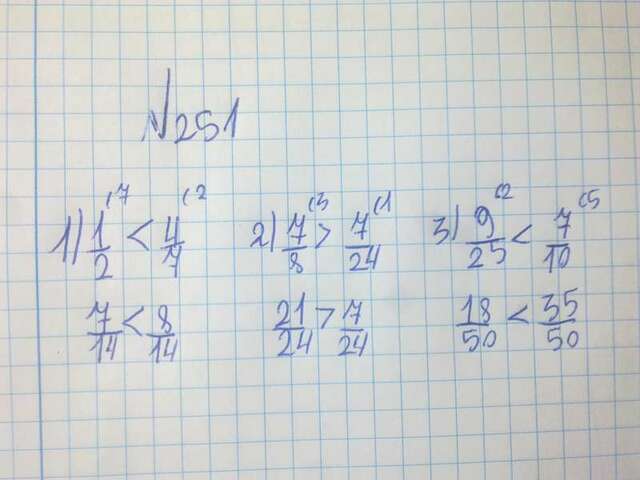 №251
1) 1/2 (7 < 4/7 (2 2) 7/8 (3 > 7/24 (1 3) 9/25 (2 < 7/10 (5
7/14 < 8/14 21/24 > 7/24 18/50 < 35/50